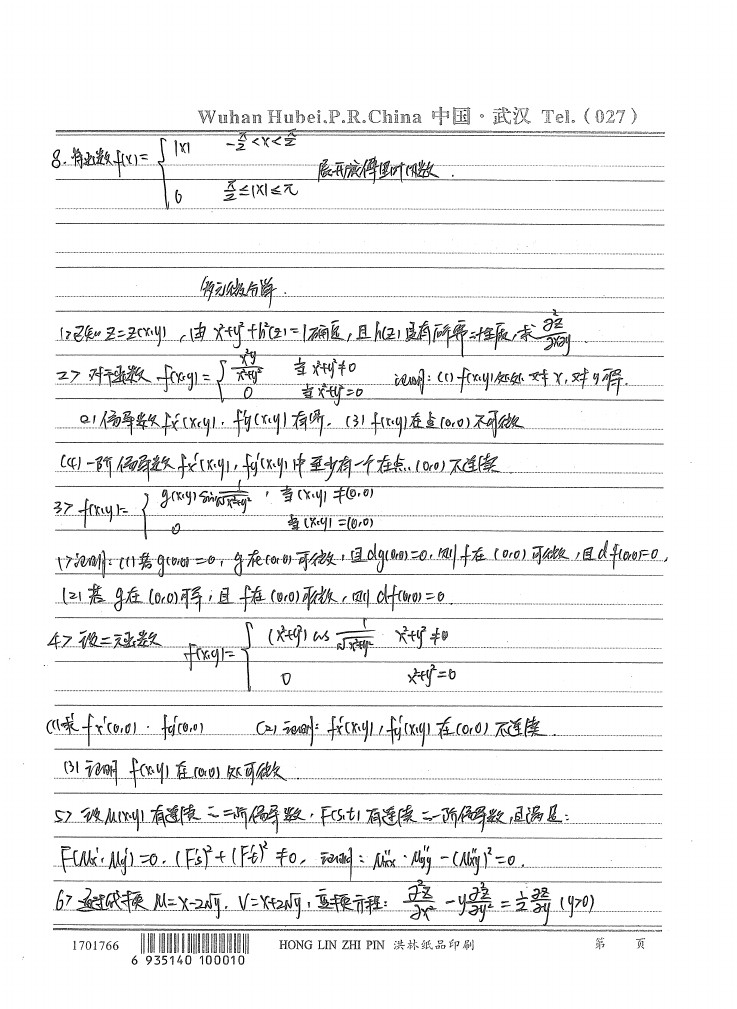 Wuhan Hubei.P.R.China 中国·武汉 Tel.(027)
8. 将函数 f(x)= { |x| -π/2<x<π/2
0 π/2≤|x|≤π 展开成傅里叶级数.
多元微分学.
1> 已知 z=z(x,y), 由 x²+y²+h²(z)=1确定, 且 h(z) 具有所需之性质, 求 ∂²z/∂x∂y
2> 对于函数 f(x,y)= { x²y/x²+y² 当 x²+y²≠0
0 当 x²+y²=0 证明: (1) f(x,y)处处对x, 对y可导.
(2) 偏导数 fx'(x,y), fy'(x,y) 有界. (3) f(x,y)在点(0,0)不可微
(4) 一阶偏导数 fx'(x,y), fy'(x,y)中至少有一个在点(0,0)不连续
3> f(x,y)= { g(x,y) sin 1/√x²+y², 当 (x,y)≠(0,0)
0 当 (x,y)=(0,0)
1> 证明: (1) 若 g(0,0)=0, g在(0,0)可微, 且 dg(0,0)=0, 则 f在(0,0)可微, 且 df(0,0)=0,
(2) 若 g在(0,0)可导, 且 f在(0,0)可微, 则 df(0,0)=0.
4> 设二元函数 f(x,y)= { (x²+y²) cos 1/√x²+y² x²+y²≠0
0 x²+y²=0
(1) 求 fx'(0,0), fy'(0,0) (2) 证明: fx'(x,y), fy'(x,y)在(0,0)不连续
(3) 证明 f(x,y)在(0,0)处可微
5> 设 u(x,y)有连续二阶偏导数, F(s,t)有连续一阶偏导数, 且满足:
F(ux', uy')=0, (Fs')²+(Ft')²≠0, 证明: uxx''·uyy''-(uxy'')²=0.
6> 通过代换 u=x-2√y, v=x+2√y, 变换方程: ∂²z/∂x² - y∂²z/∂y² = 1/2 ∂z/∂y (y>0)
1701766 HONG LIN ZHI PIN 洪林纸品印刷 第 页
6 935140 100010